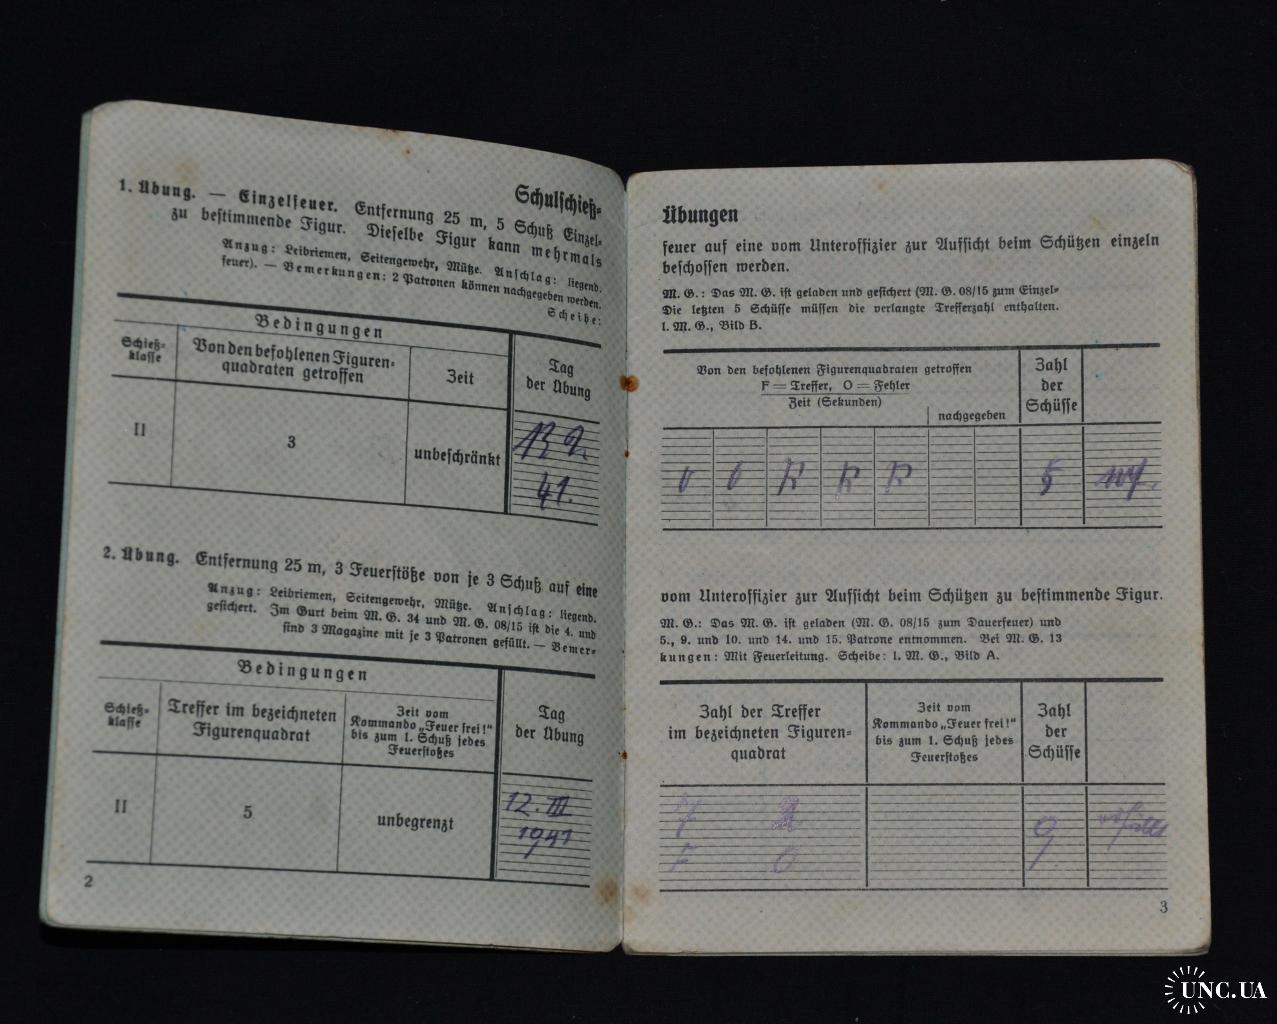 Schulschieß-
1. Übung. — Einzelfeuer. Entfernung 25 m, 5 Schuß Einzel-
zu bestimmende Figur. Dieselbe Figur kann mehrmals
Anzug: Leibriemen, Seitengewehr, Mütze. Anschlag: liegend.
feuer). — Bemerkungen: 2 Patronen können nachgegeben werden.
Scheibe:
Bedingungen
Schieß-
klasse
Von den befohlenen Figuren-
quadraten getroffen
Zeit
Tag
der Übung
II
3
unbeschränkt
41.
2. Übung. Entfernung 25 m, 3 Feuerstöße von je 3 Schuß auf eine
Anzug: Leibriemen, Seitengewehr, Mütze. Anschlag: liegend.
gesichert. Im Gurt beim M. G. 34 und M. G. 08/15 ist die 4. und
sind 3 Magazine mit je 3 Patronen gefüllt. — Bemer-
Bedingungen
Schieß-
klasse
Treffer im bezeichneten
Figurenquadrat
Zeit vom
Kommando „Feuer frei!“
bis zum 1. Schuß jedes
Feuerstoßes
Tag
der Übung
II
5
unbegrenzt
12. III
1941
2
Übungen
feuer auf eine vom Unteroffizier zur Aufsicht beim Schützen einzeln
beschossen werden.
M. G.: Das M. G. ist geladen und gesichert (M. G. 08/15 zum Einzel-
Die letzten 5 Schüsse müssen die verlangte Trefferzahl enthalten.
l. M. G., Bild B.
Von den befohlenen Figurenquadraten getroffen
F = Treffer, O = Fehler
Zeit (Sekunden)
nachgegeben
Zahl
der
Schüsse
0 0 F F F 5
vom Unteroffizier zur Aufsicht beim Schützen zu bestimmende Figur.
M. G.: Das M. G. ist geladen (M. G. 08/15 zum Dauerfeuer) und
5., 9. und 10. und 14. und 15. Patrone entnommen. Bei M. G. 13
kungen: Mit Feuerleitung. Scheibe: l. M. G., Bild A.
Zahl der Treffer
im bezeichneten Figuren-
quadrat
Zeit vom
Kommando „Feuer frei!“
bis zum 1. Schuß jedes
Feuerstoßes
Zahl
der
Schüsse
9
3
UNC.UA